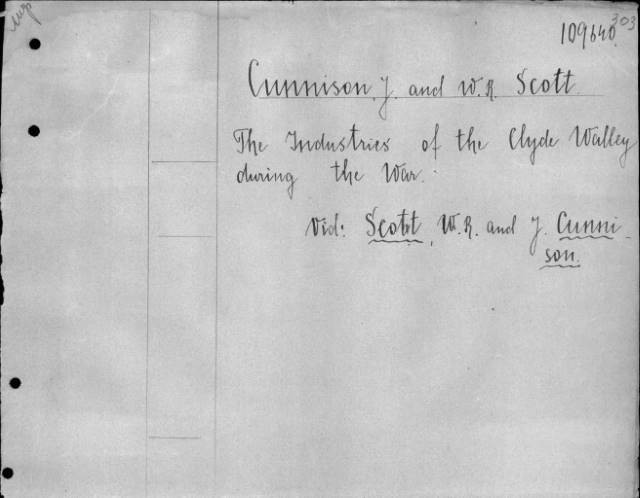 303
109640
Cunnison, J. and W. R. Scott
The Industries of the Clyde Walley
during the War.
Vid: Scott, W. R. and J. Cunni-
son.